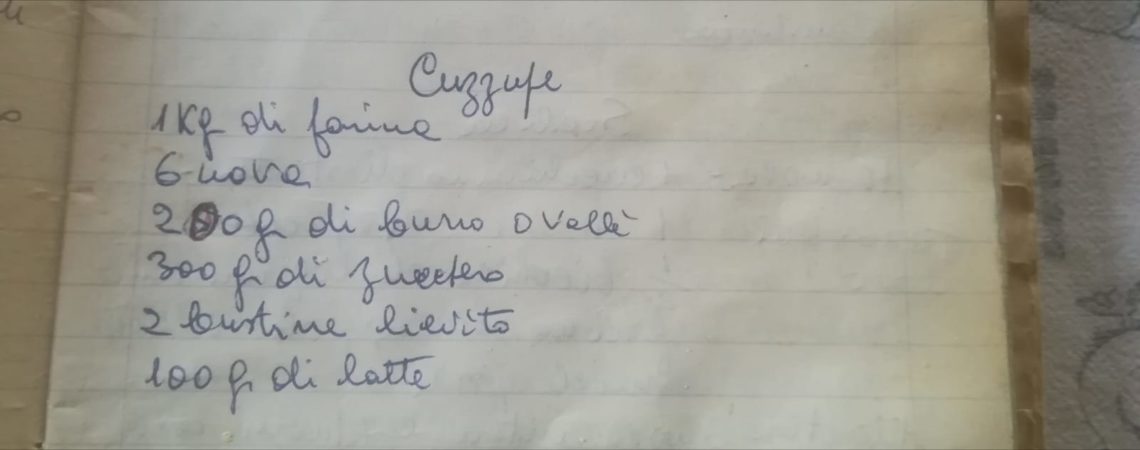 Cuzzupe
1Kg di farina
6 uova
200g di burro o Vallè
300 g di zucchero
2 bustine lievito
100 g di latte